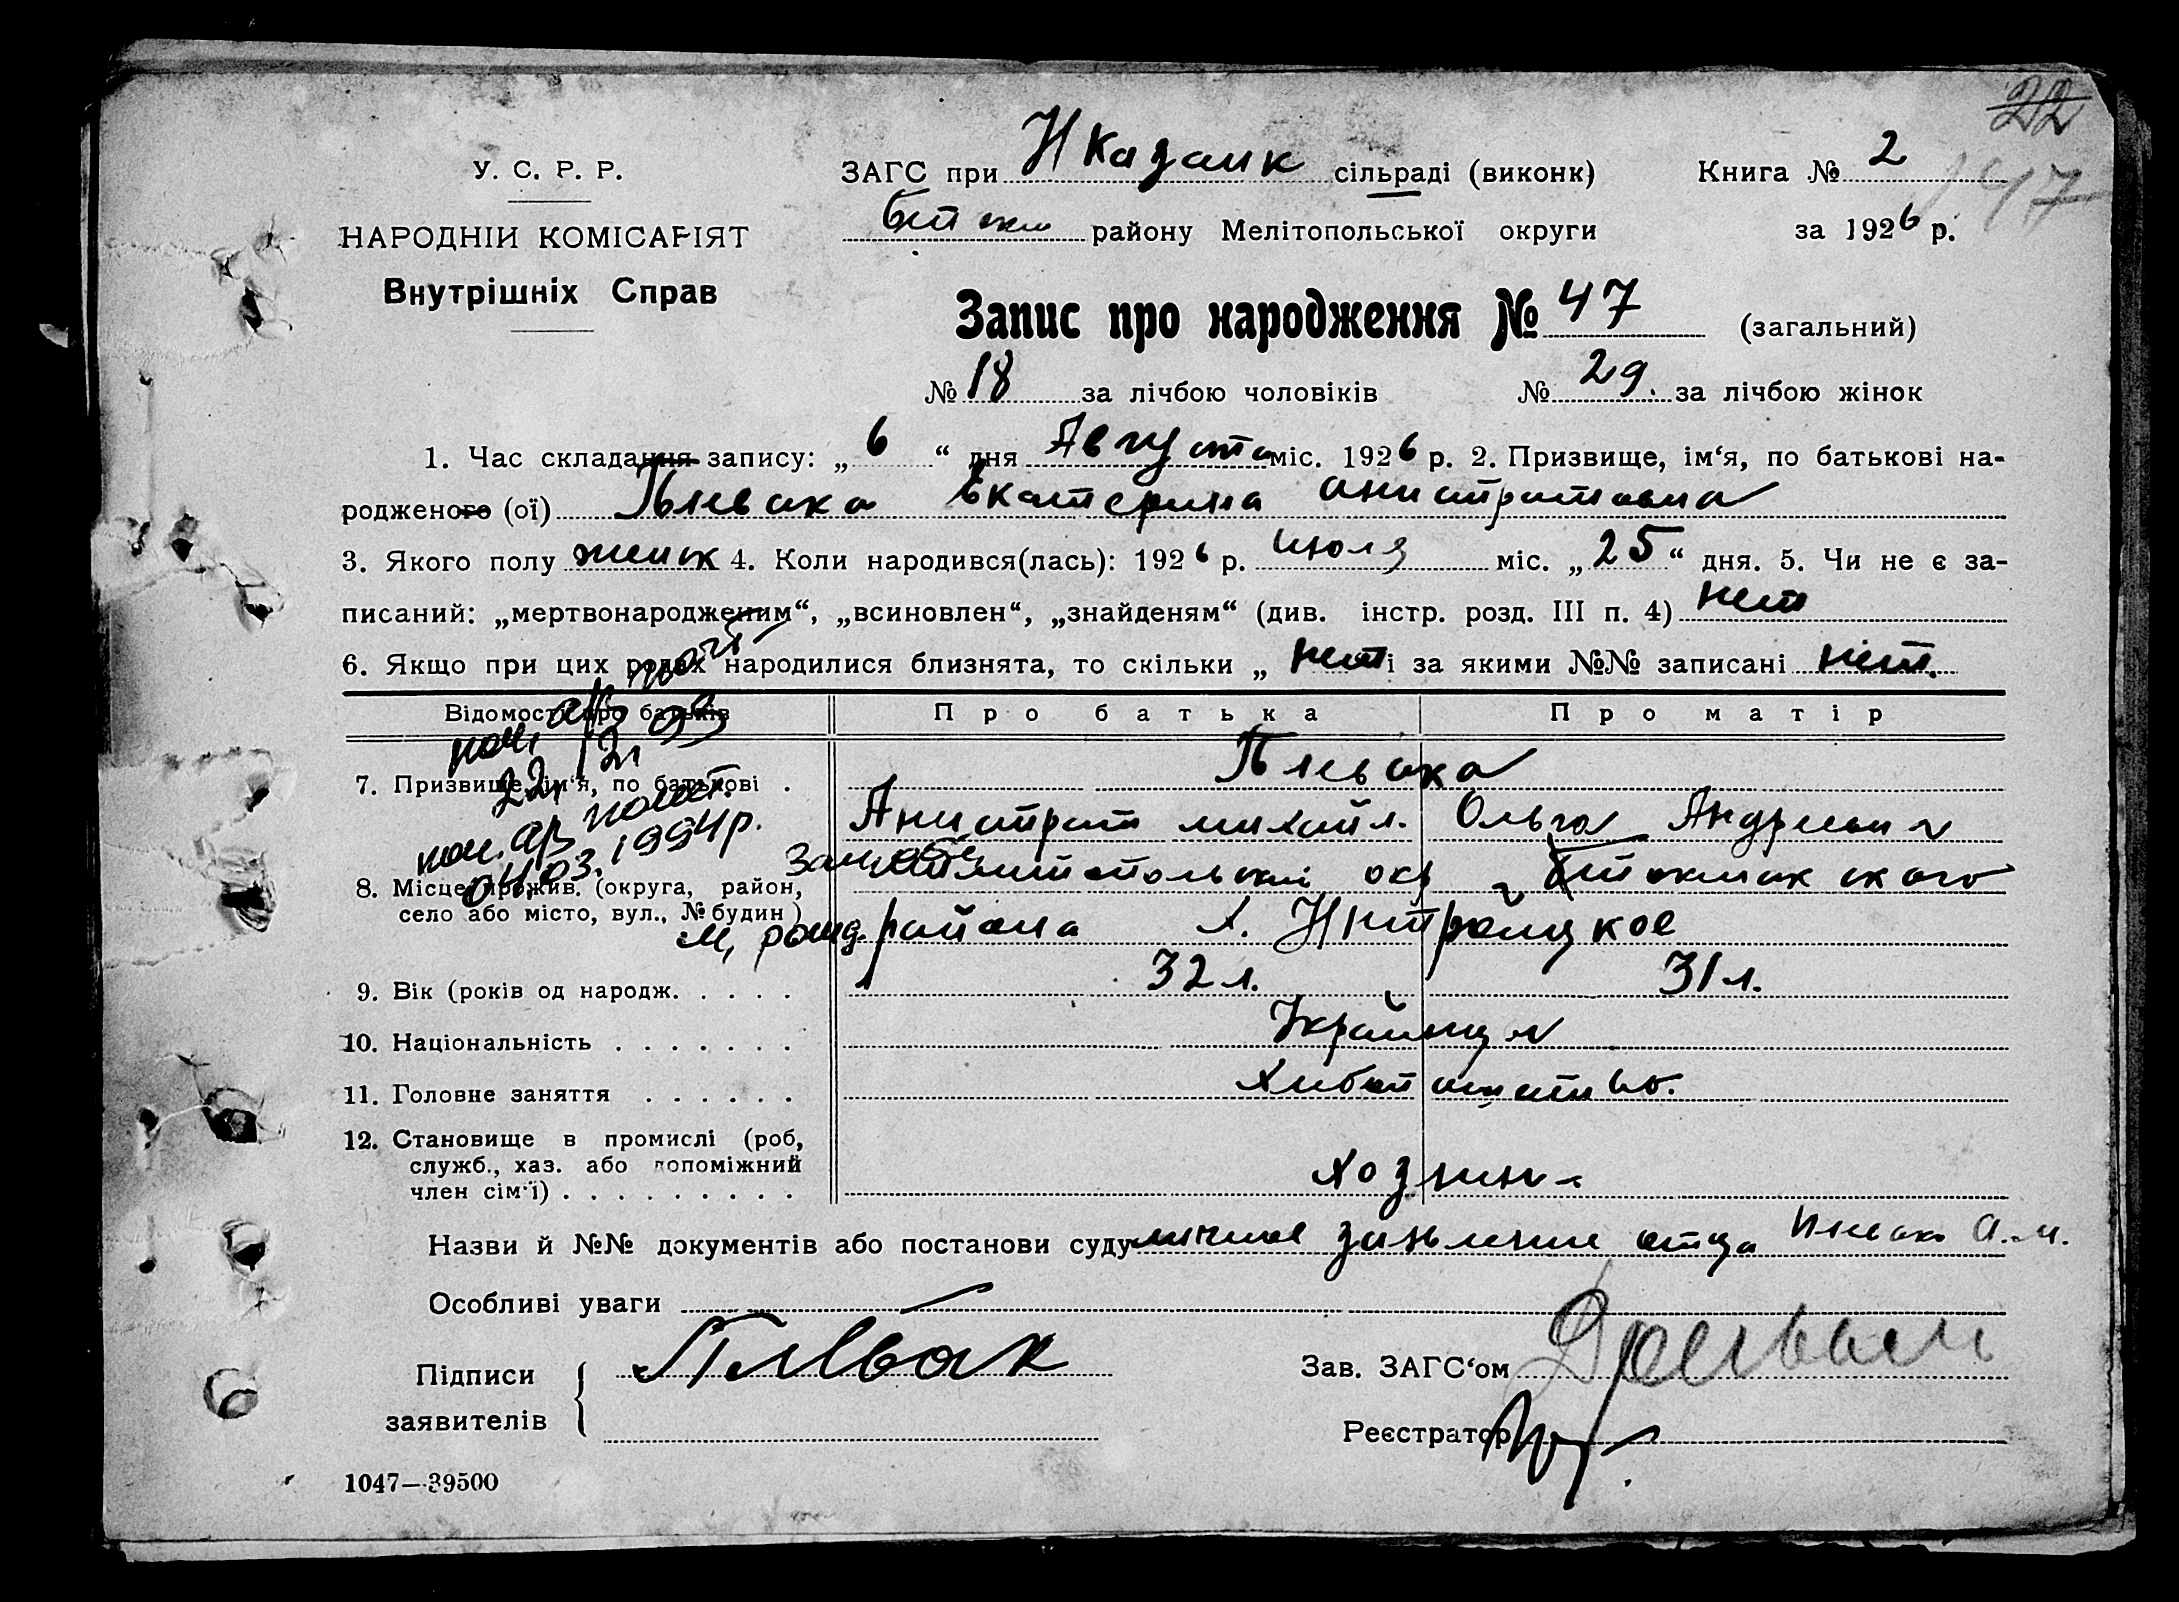 22
47
У. С. Р. Р.
НАРОДНІЙ КОМІСАРІЯТ
Внутрішніх Справ
ЗАГС при Н Казанк сільраді (виконк)
району Мелітопольської округи
Книга № 2
за 1926 р.
Запис про народження № 47 (загальний)
№ 18 за лічбою чоловіків № 29. за лічбою жінок
1. Час складання запису: „ 6 “ дня Августа міс. 1926 р. 2. Призвище, ім‘я, по батькові на-
родженого (ої) Пивака Екатерина Анистратовна
3. Якого полу женск 4. Коли народився(лась): 1926 р. июля міс. „ 25 “ дня. 5. Чи не є за-
писаний: „мертвонародженим“, „всиновлен“, „знайденям“ (див. інстр. розд. III п. 4) нет
6. Якщо при цих родах народилися близнята, то скільки „ нет і за якими №№ записані нет.
Відомості про батьків Про батька Про матір
22. 12. 93
04.03.1994р.
7. Призвище, ім‘я, по батькові . Пивака
Анистрат михайл. Ольга Андреевна
8. Місце прожив. (округа, район, село або місто, вул., № будин) Мелитопольской окр Бтокмакского
района х. Нитроицкое
9. Вік (років од народж. . . . . 32 л. 31 л.
10. Національність . . . . . . . Украинця
11. Головне заняття . . . . . . Хлебопашество.
12. Становище в промислі (роб, служб., хаз. або допоміжний член сім‘ї) . . . . . . . . . хозяин
Назви й №№ документів або постанови суду личное заявление отца Пивака А. М.
Особливі уваги
Підписи заявителів { Пивак
Зав. ЗАГС‘ом
Реєстратор
1047—39500